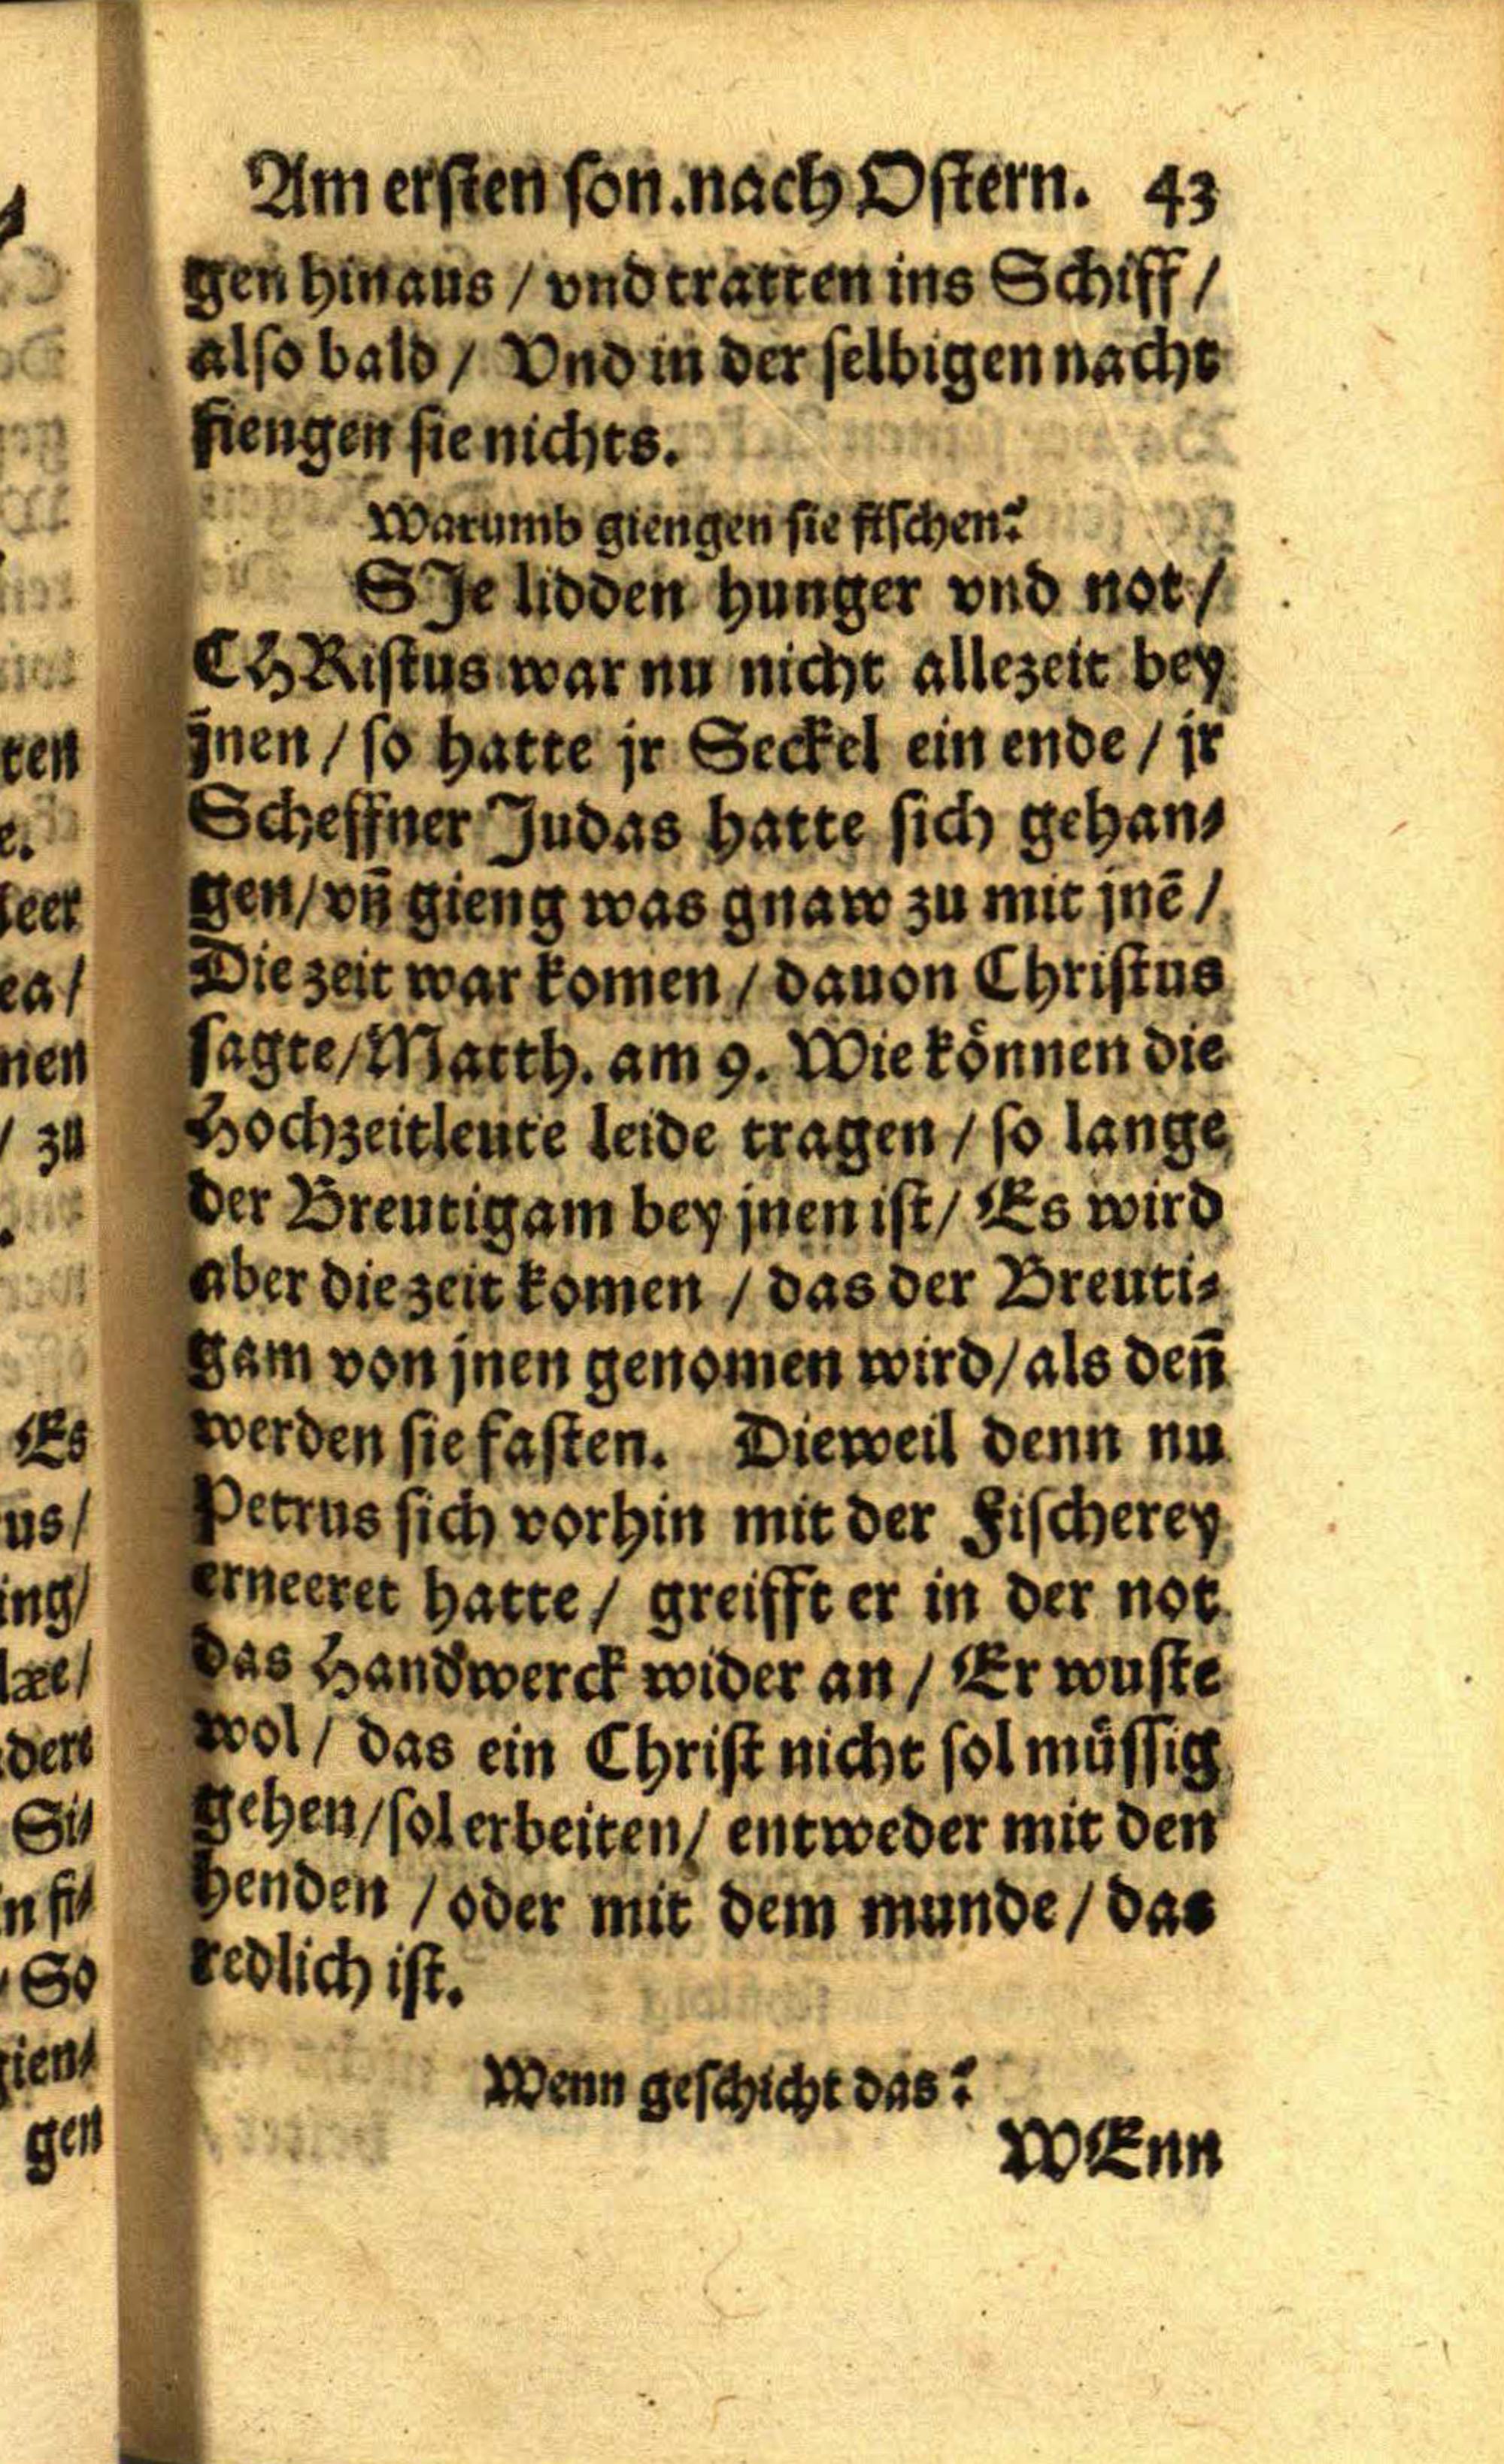 Am ersten son. nach Ostern. 43
gen hinaus / vnd tratten ins Schiff /
also bald / Vnd in der selbigen nacht
fiengen sie nichts.
Warumb giengen sie fischen?
SJe lidden hunger vnd not /
CHRistus war nu nicht allezeit bey
jnen / so hatte jr Seckel ein ende / jr
Scheffner Judas hatte sich gehan⸗
gen / vn̄ gieng was gnaw zu mit jnē /
Die zeit war komen / dauon Christus
sagte / Matth. am 9. Wie koͤnnen die
Hochzeitleute leide tragen / so lange
der Breutigam bey jnen ist / Es wird
aber die zeit komen / das der Breuti⸗
gam von jnen genomen wird / als den̄
werden sie fasten. Dieweil denn nu
Petrus sich vorhin mit der Fischerey
erneeret hatte / greifft er in der not
das Handwerck wider an / Er wuste
wol / das ein Christ nicht sol muͤssig
gehen / sol erbeiten / entweder mit den
henden / oder mit dem munde / das
redlich ist.
Wenn geschicht das?
WEnn
ten
e.
leer
ea /
nen
/ zu
Es
us /
ing /
læe /
dere
Si⸗
n fi⸗
So
gien⸗
gen